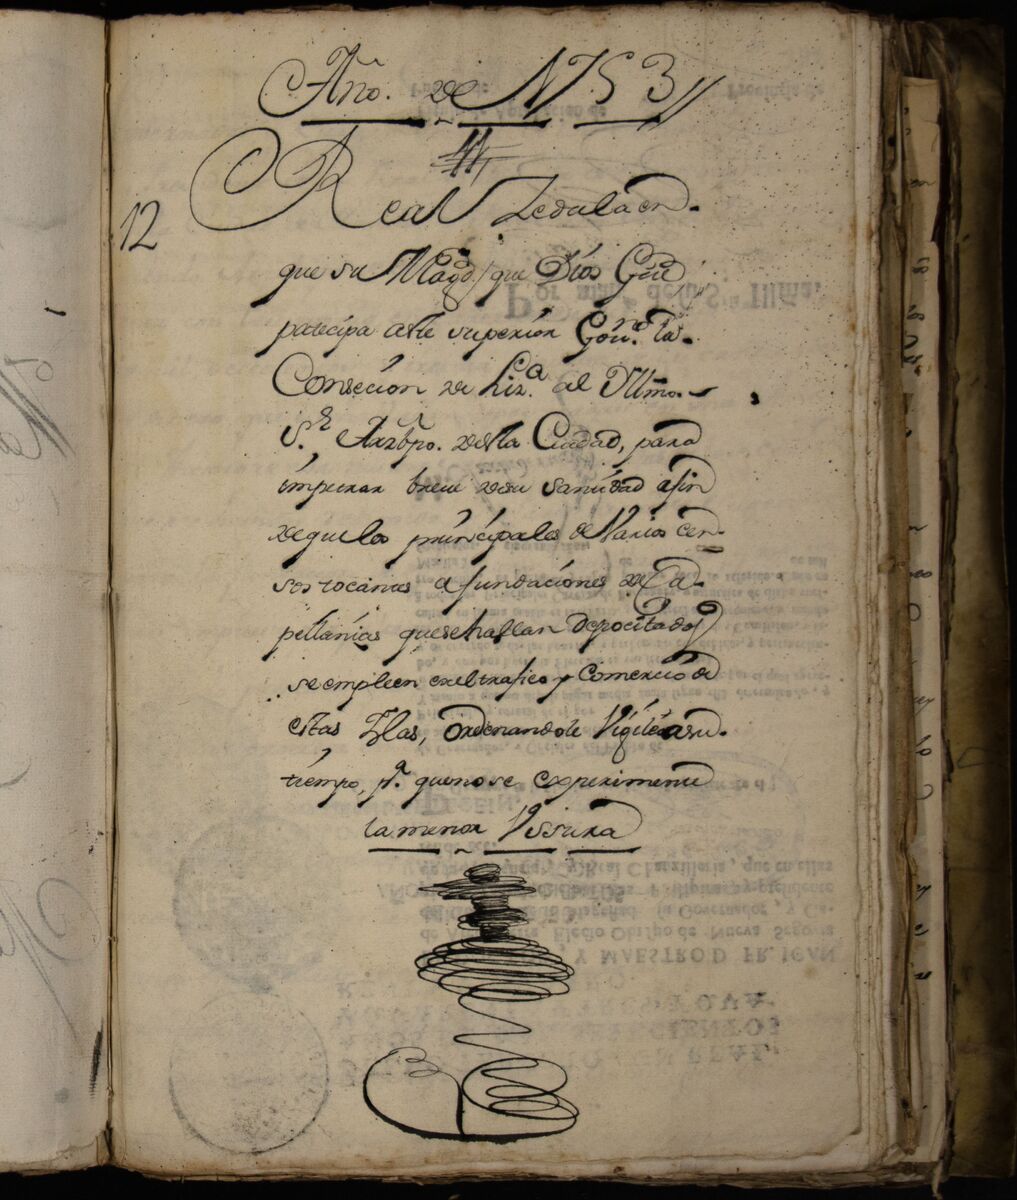 Año. de 1753
12
Real Zedula en
que su Magd. que Dios Gue
patecipa a este superior Govno. la
Conseción de Liz.a al Yllmo.
S.r Arzbpo. de esta Ciudad, para
impetrar breve de su Santidad a fin
de que los principales de Varios cen
sos tocantes a fundaciones de Ca
pellanias que se hallan depocitados
se empleen en el trafico y Comercio de
estas Yslas, ordenandole Vigile a su
tiempo, p.a que no se experimente
la menor Vssura